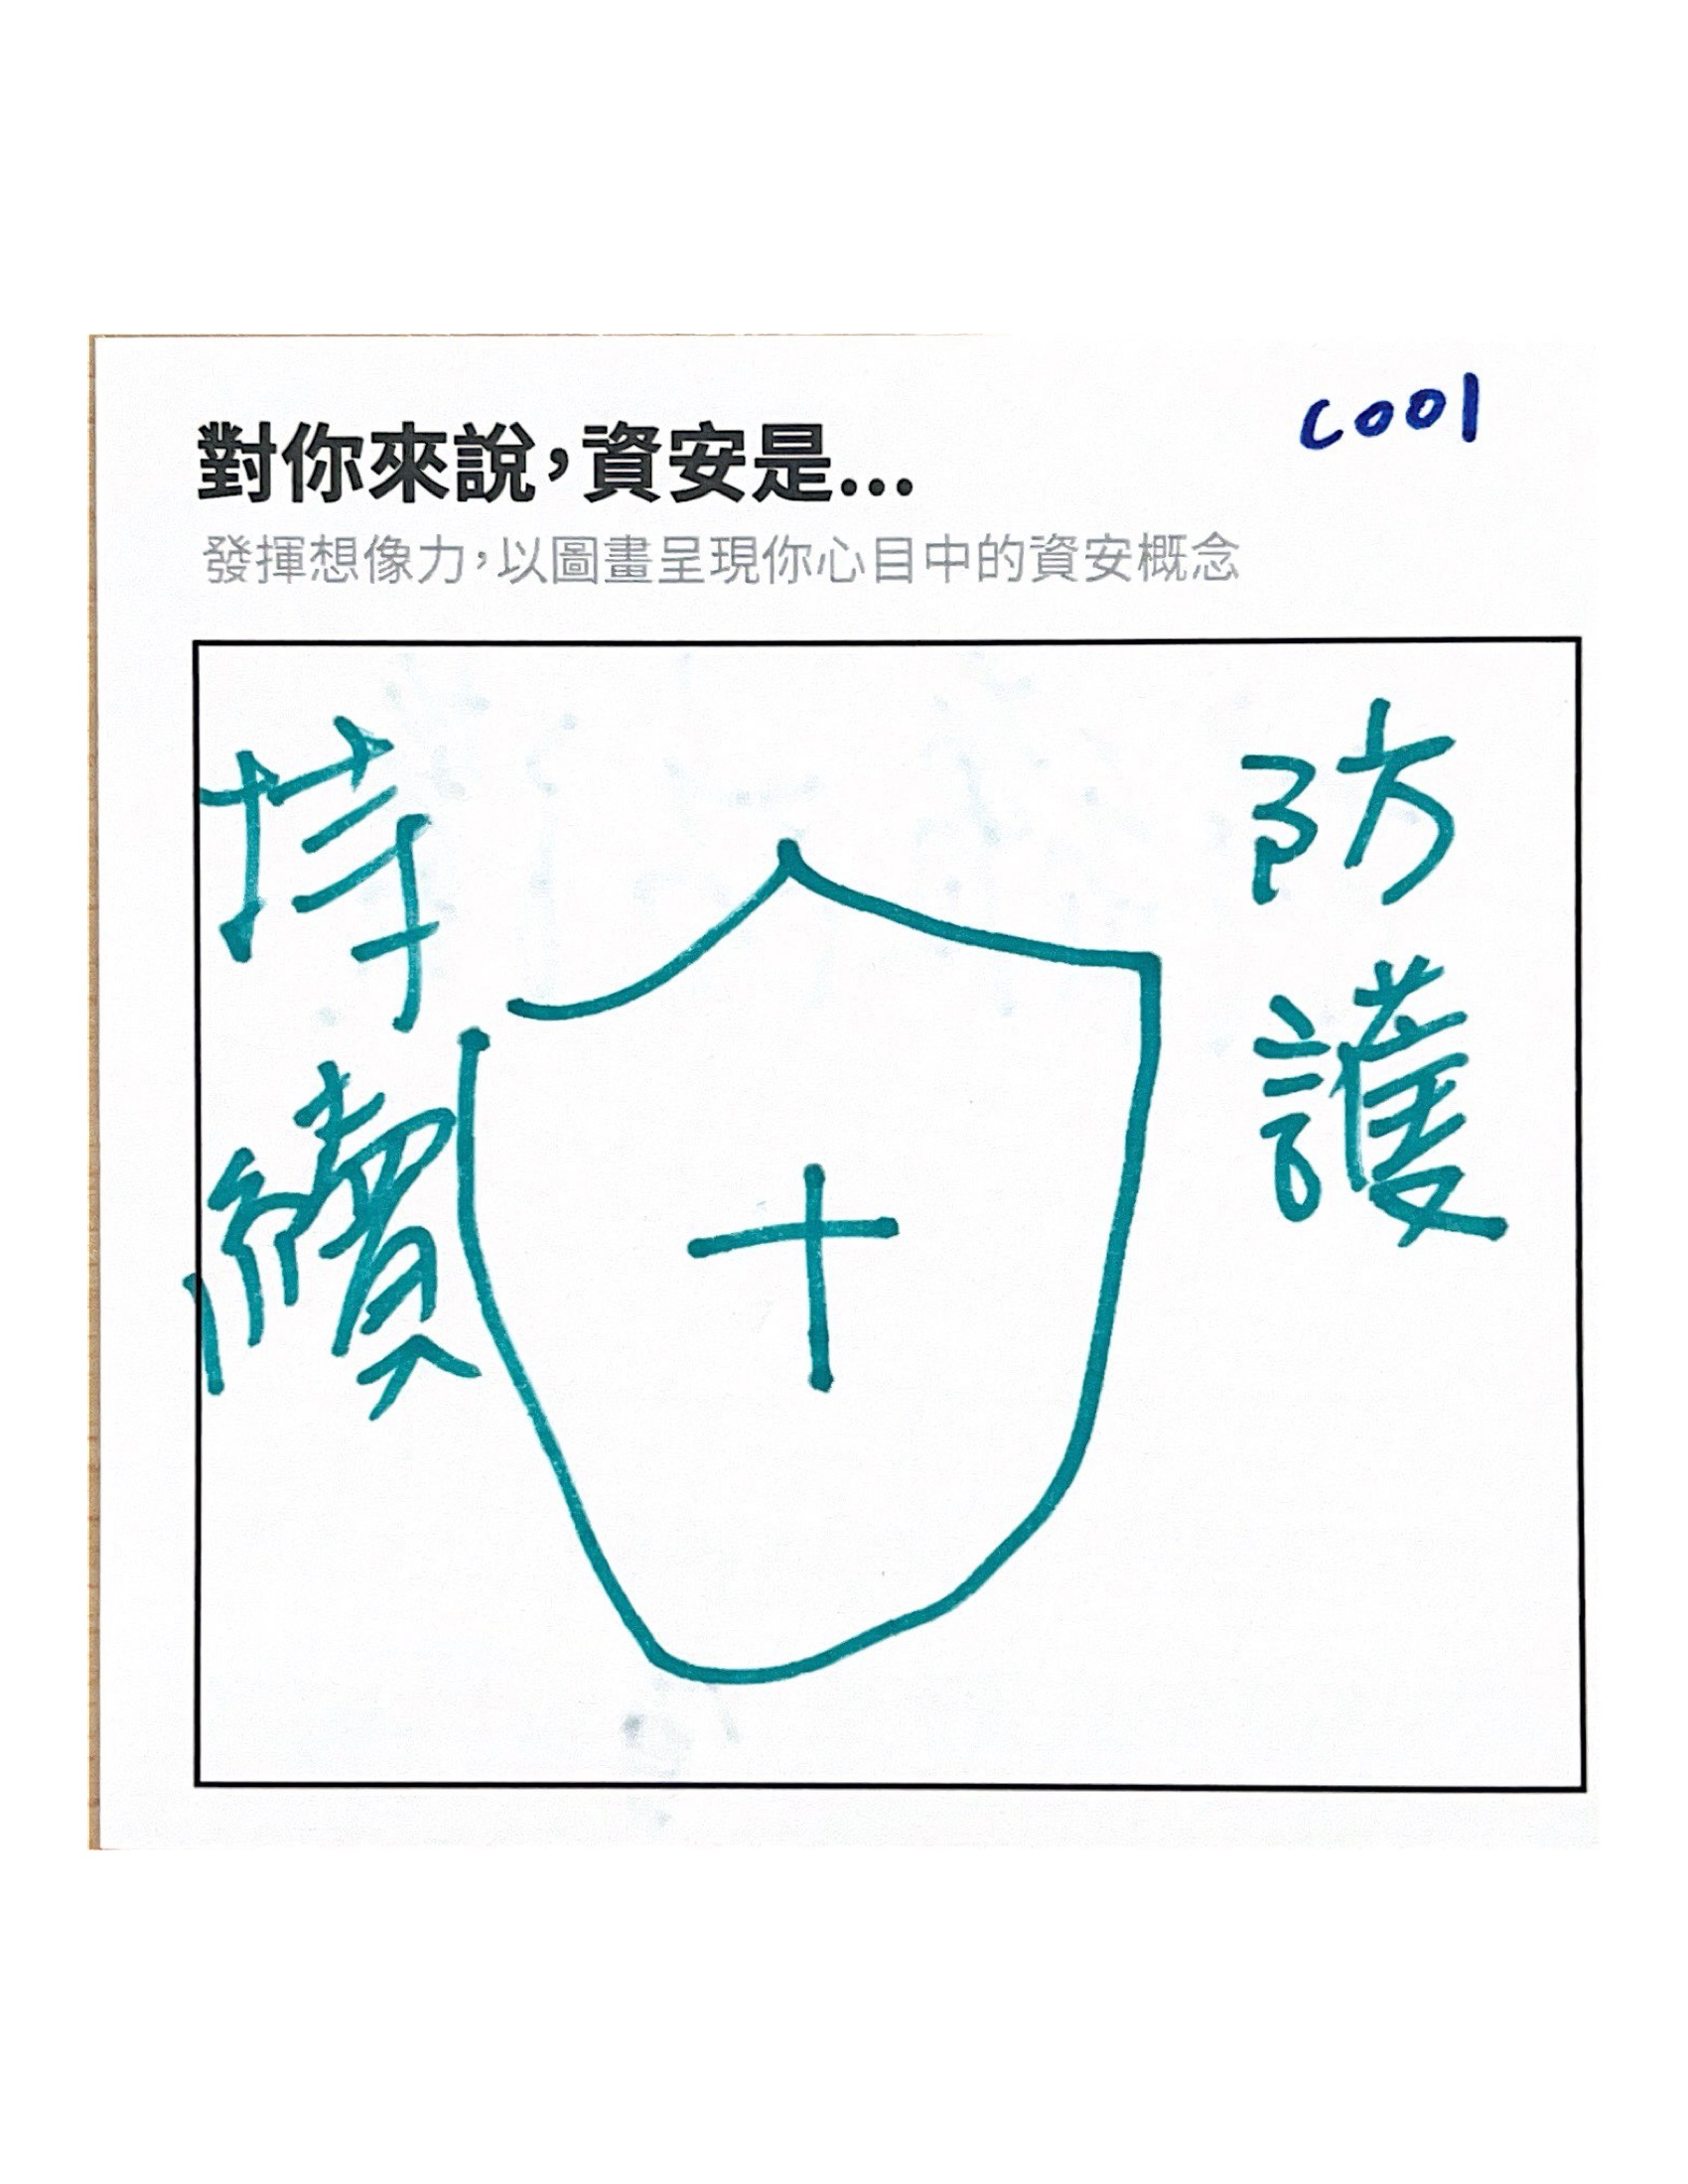 cool
對你來說，資安是...
發揮想像力，以圖畫呈現你心目中的資安概念
持續
防護